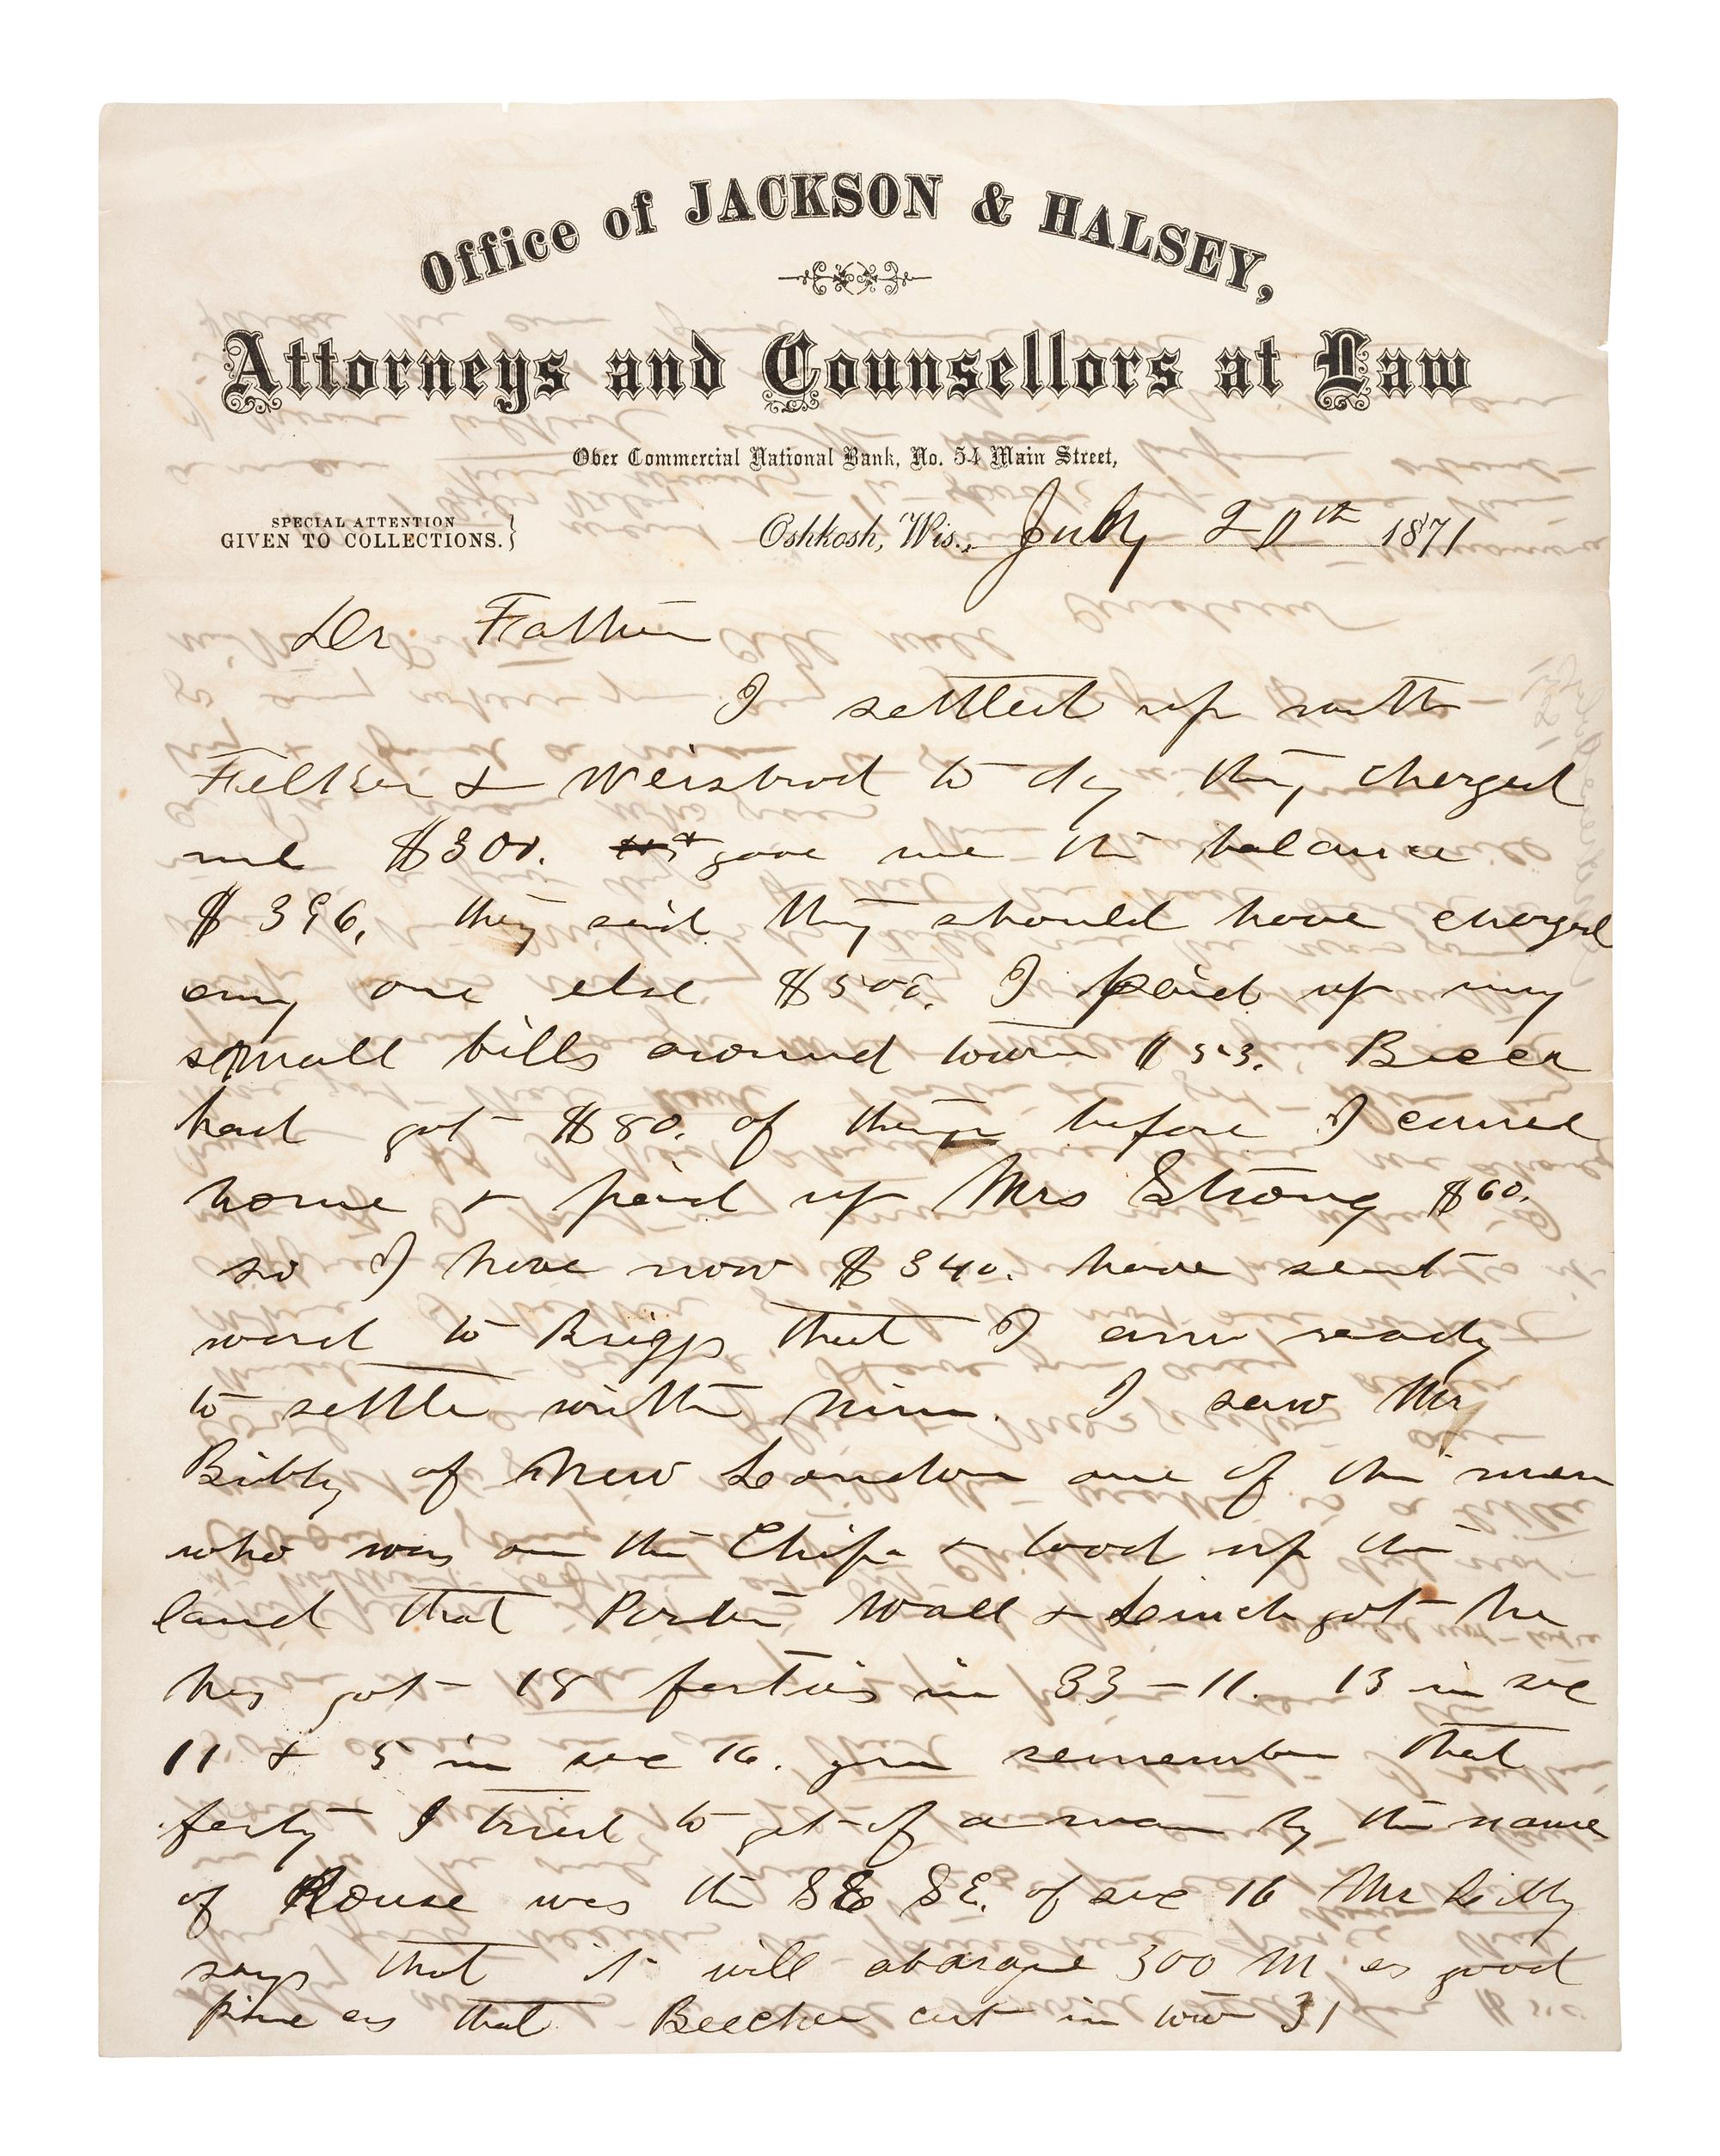 Office of JACKSON & HALSEY,
Attorneys and Counsellors at Law
Over Commercial National Bank, No. 54 Main Street,
SPECIAL ATTENTION
GIVEN TO COLLECTIONS.
Oshkosh, Wis., July 20th 1871
Dr Father
I settled up with
Felker & Weisbrod to dy they charged
me $300. gave me the balance
$396. they said they should have charged
any one else $500. I paid up my
small bills around town $53. Becca
had got $80. of things before I came
home & paid up Mrs Strong $60.
so I have now $340. have sent
word to Briggs that I am ready
to settle with him. I saw Mr
Bibby of New London one of the men
who was on the Chip & took up the
land that Porter Wall & got he
has got 18 forties in 33-11. 13 in sec
11 & 5 in sec 16. you remember that
forty I tried to get of a man by the name
of Rouse was the SE SE. of sec 16 Mr Libby
says that it will abarage 300 M as good
pine as that Beecher cut in tow 31